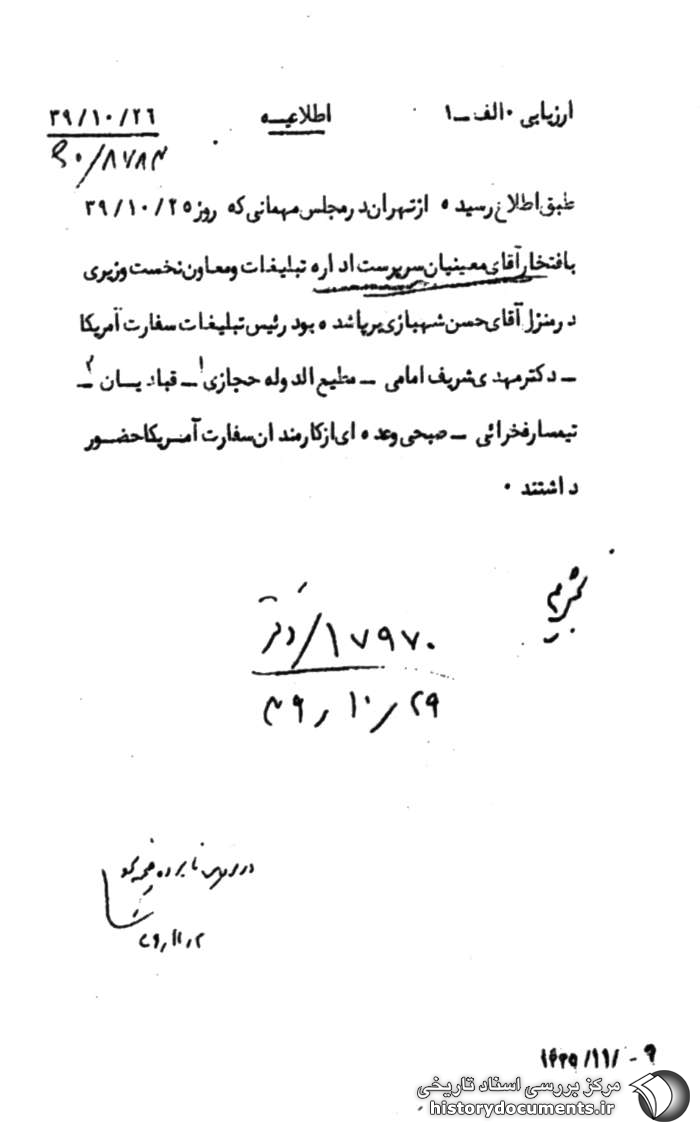 ارزیابی ۰ الف ــ ۱ اطلاعیــه ۳۹/۱۰/۲۶
۳۰/۸۷۸۳
طبق اطلاع رسیده از تهران در مجلس مهمانی که روز ۳۹/۱۰/۲۵
بافتخار آقای معینیان سرپرست اداره تبلیغات و معاون نخست وزیری
در منزل آقای حسن شهبازی برپا شده بود رئیس تبلیغات سفارت آمریکا
ــ دکتر مهدی شریف امامی ــ مطیع الدوله حجازی ۱ ــ قبادیــان ۲ ــ
تیمسار فخرائی ــ صبحی و عده ای از کارمندان سفارت آمــریکا حضــور
داشتند ۰
۱۷۹۷۰/دفتر
۳۹/۱۰/۲۹
در پرونده نامبرده ضمیمه شود
۳۹/۱۱/۲
۱۳۳۹/۱۱/۰۹
مرکز بررسی اسناد تاریخی
historydocuments.ir